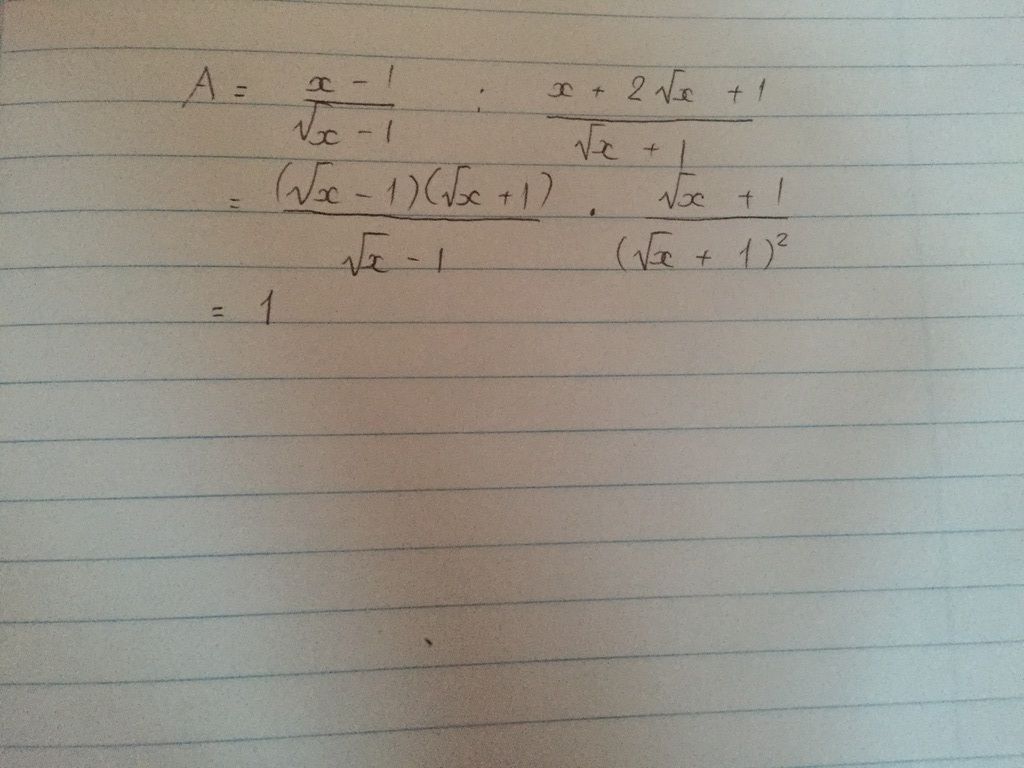 A = \frac{x - 1}{\sqrt{x} - 1} : \frac{x + 2\sqrt{x} + 1}{\sqrt{x} + 1}
= \frac{(\sqrt{x} - 1)(\sqrt{x} + 1)}{\sqrt{x} - 1} . \frac{\sqrt{x} + 1}{(\sqrt{x} + 1)^2}
= 1